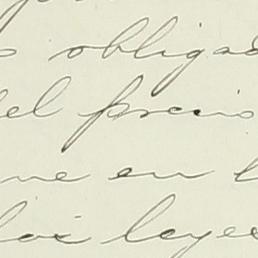 obligad
del precio
me en l
leyes